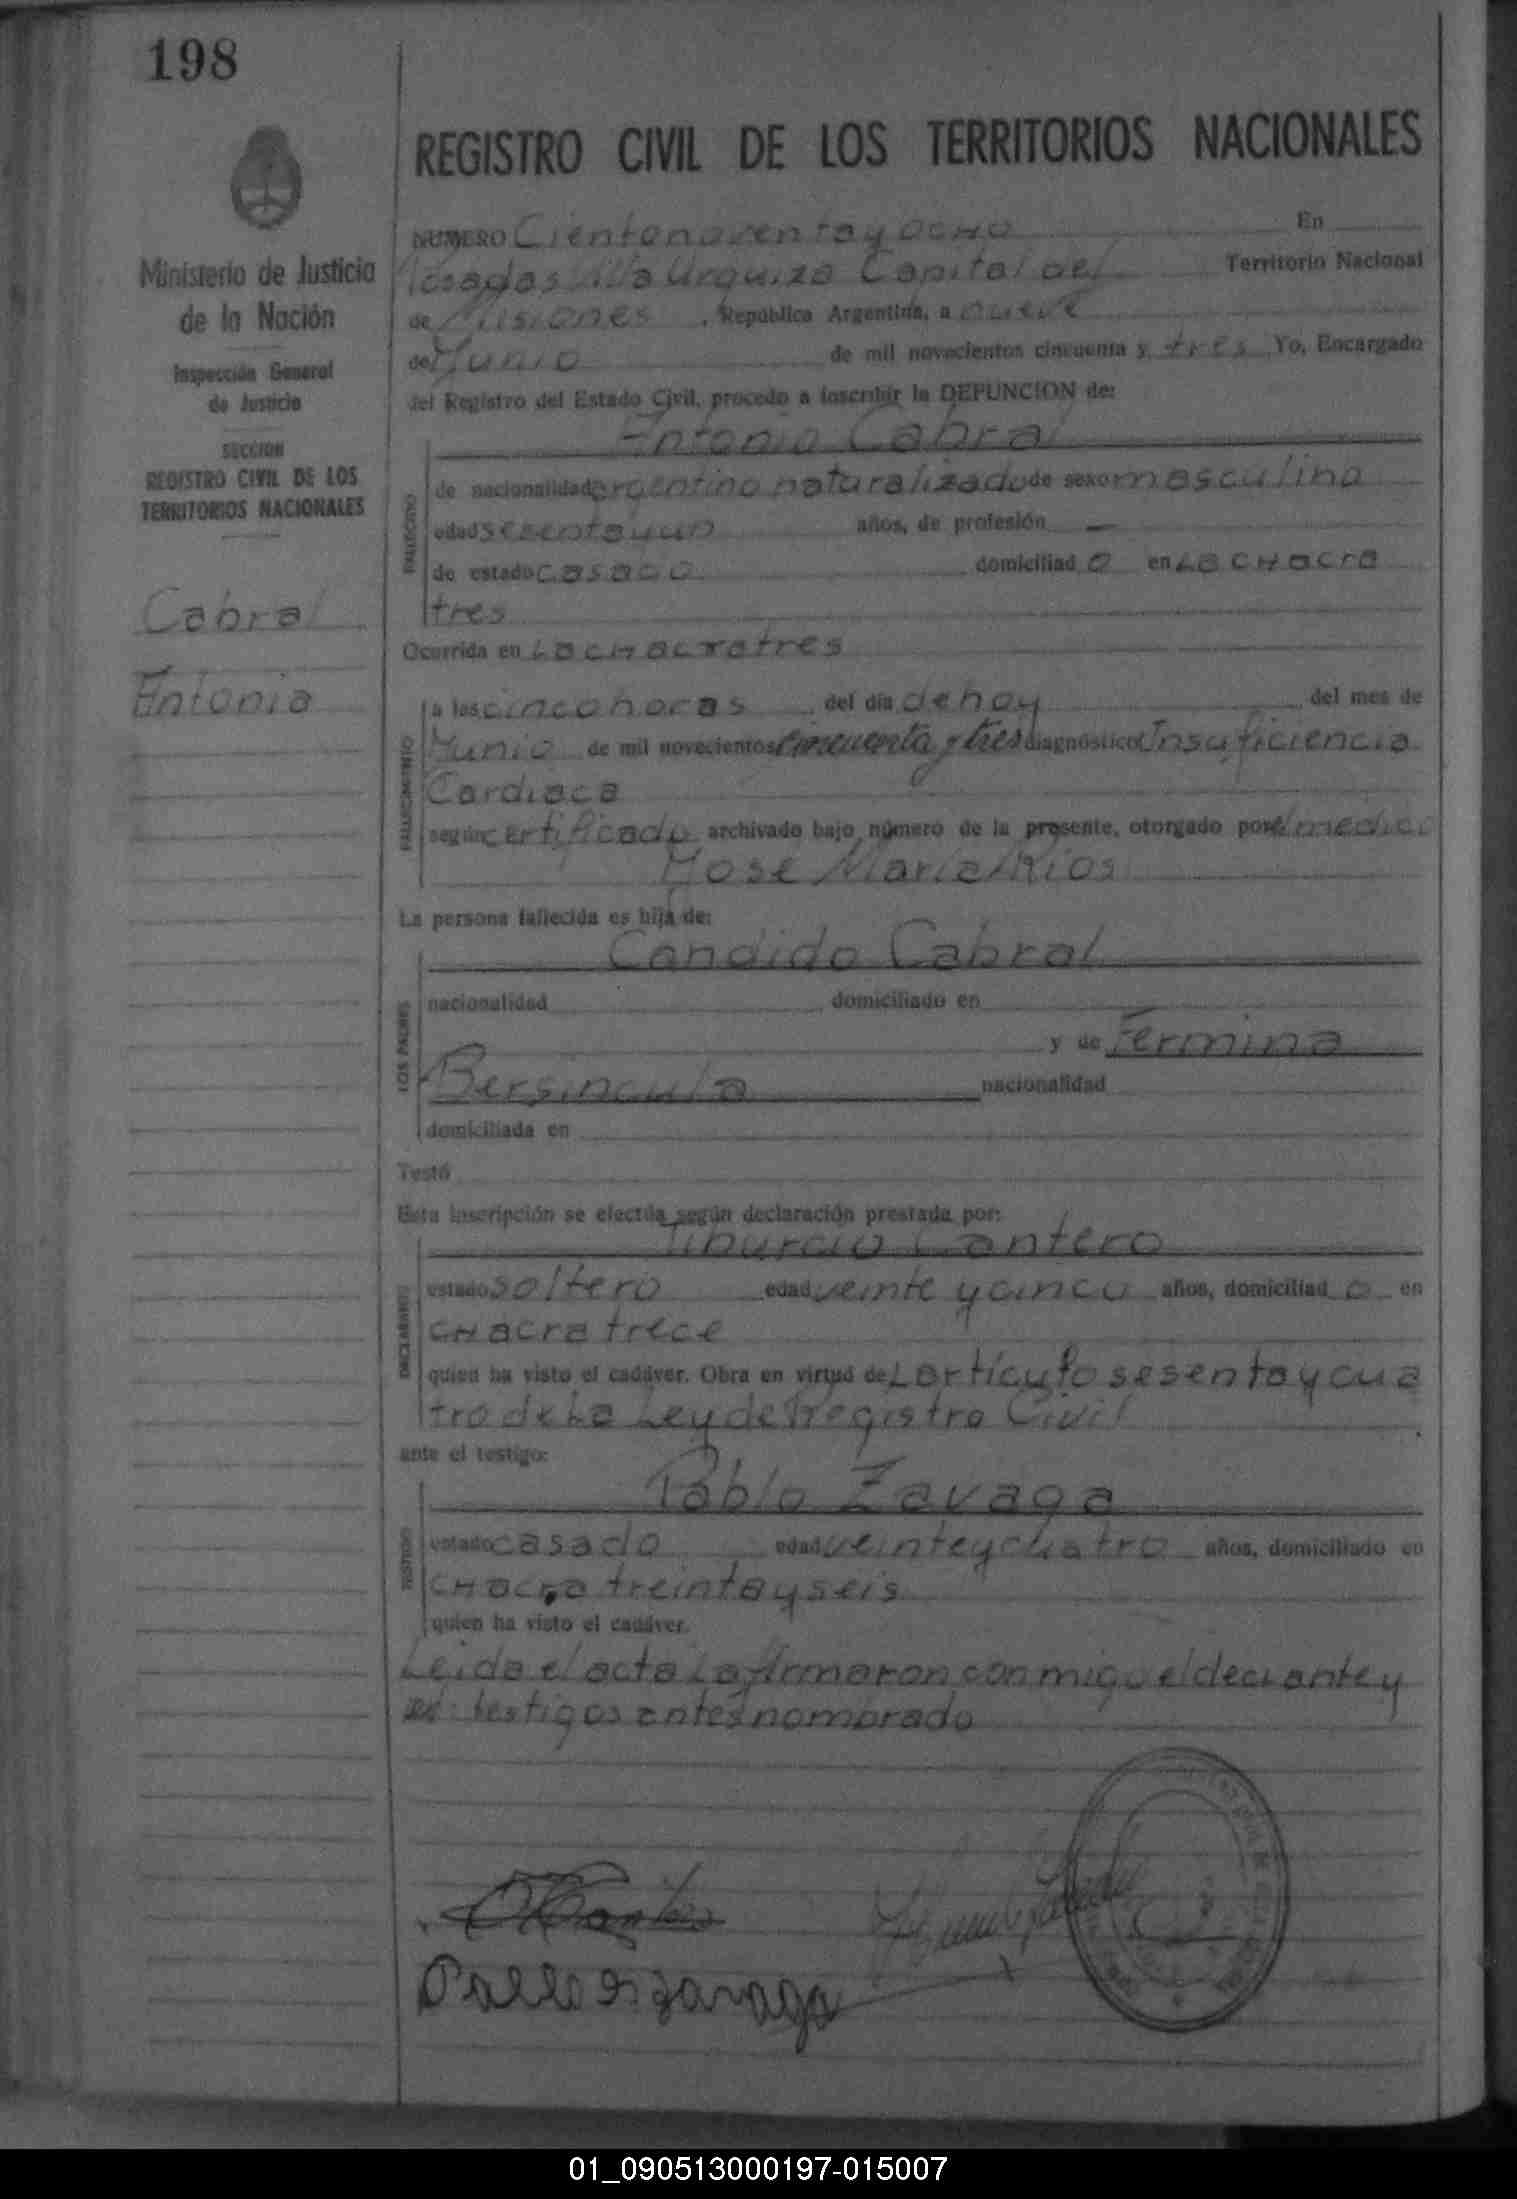 198
REGISTRO CIVIL DE LOS TERRITORIOS NACIONALES
Ministerio de Justicia
de la Nación
Inspección General
de Justicia
SECCION
REGISTRO CIVIL DE LOS
TERRITORIOS NACIONALES
Cabral
Antonio
NUMERO Ciento noventa y ocho En
Posadas Villa Urquiza Capital del Territorio Nacional
de Misiones, República Argentina, a nueve
de Junio de mil novecientos cincuenta y tres Yo, Encargado
del Registro del Estado Civil, procedo a inscribir la DEFUNCION de:
Antonio Cabral
FALLECIDO
de nacionalidad argentino naturalizado de sexo masculino
edad sesenta y un años, de profesión —
de estado casado domiciliad o en La chacra
tres
Ocurrida en La chacra tres
FALLECIMIENTO
a las cinco horas del día de hoy del mes de
Junio de mil novecientos cincuenta y tres diagnóstico Insuficiencia
Cardiaca
según certificado archivado bajo número de la presente, otorgado por el medico
Jose Maria Rios
La persona fallecida es hija de:
Candido Cabral
LOS PADRES
nacionalidad domiciliado en
y de Fermina
Bersincula nacionalidad
domiciliada en
Testó
Esta inscripción se efectúa según declaración prestada por:
Tiburcio Cantero
DECLARANTE
estado soltero edad veinte y cinco años, domiciliad o en
chacra trece
quien ha visto el cadáver. Obra en virtud de L articulo sesenta y cua
tro de La Ley de Registro Civil
ante el testigo:
Pablo Zavaga
TESTIGO
estado casado edad veinte y cuatro años, domiciliado en
chacra treinta y seis
quien ha visto el cadáver.
Leida el acta La firmaron conmigo el declante y
testigos antes nombrado
Pablo Zavaga
01_090513000197-015007